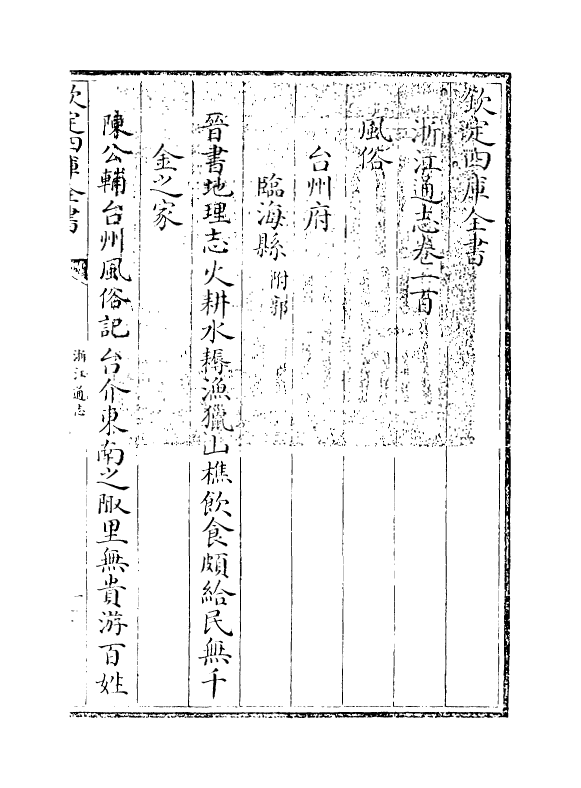 欽定四庫全書
浙江通志卷一百
風俗
台州府
臨海縣附郭
晉書地理志火耕水耨漁獵山樵飲食頗給民無千
金之家
陳公輔台州風俗記台介東南之陬里無貴游百姓
欽定四庫全書
浙江通志
一